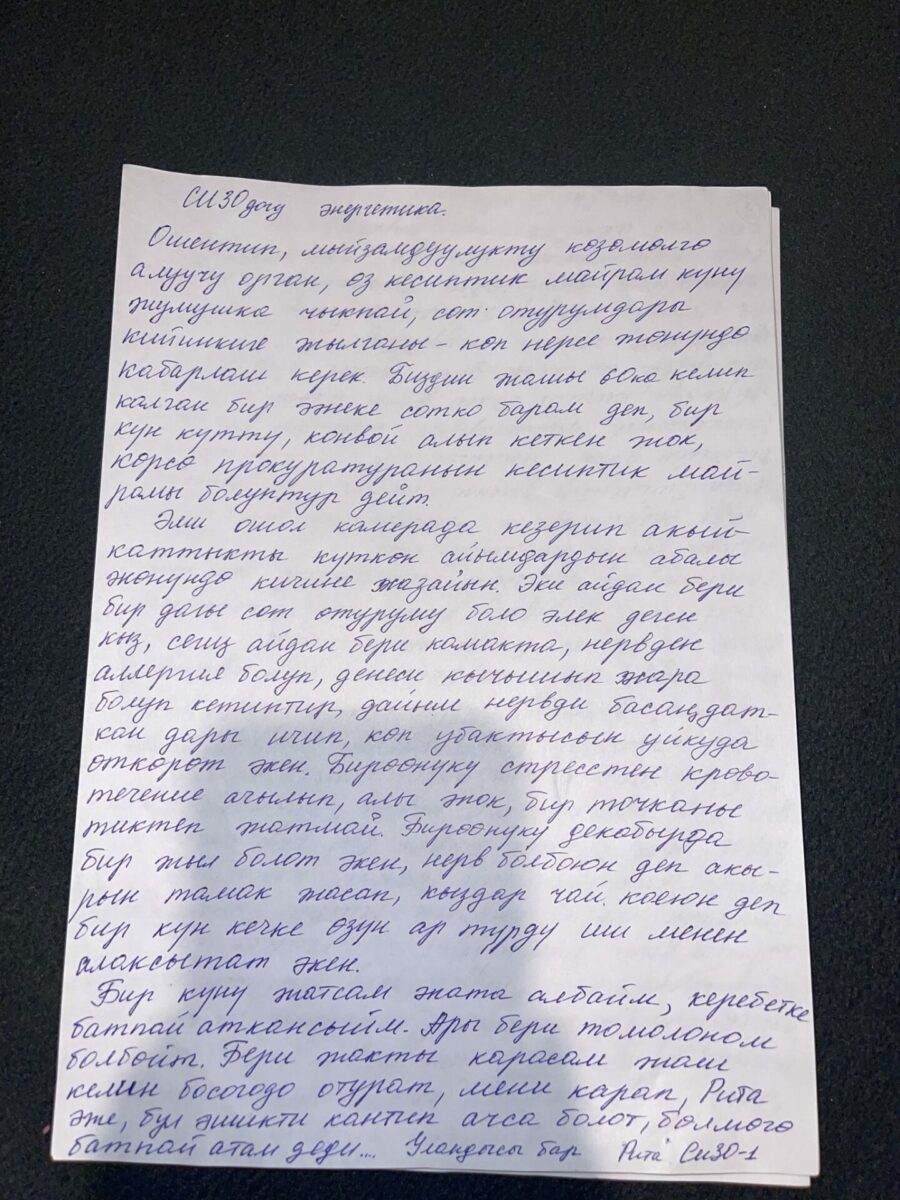 СИЗОдогу энергетика.
Ошентип, мыйзамдуулукту козомолго
алуучу орган, оз кесиптик майрам куну
жумушка чыкпай, сот отурумдары
кийинкиге жылганы - коп нерсе жонундо
кабарлаш керек. Биздин жашы 60ка келип
калган бир энеке сотко барам деп, бир
кун кутту, конвой алып кеткен жок,
корсо прокуратуранын кесиптик май-
рамы болуптур дейт.
Эми ошол камерада кезерип акый-
каттыкты куткон айымдардын абалы
жонундо кичине жазайын. Эки айдан бери
бир дагы сот отуруму боло элек деген
кыз, сегиз айдан бери камакта, нервден
аллергия болуп, денеси кычышып жара
болуп кетиптир, дайыма нервди басаңдат-
кан дары ичип, коп убактысын уйкуда
откорот экен. Бироонуку стресстен крово-
течение ачылып, алы жок, бир точканы
тиктеп жатмай. Бироонуку декабырда
бир жыл болот экен, нерв болбоюн деп акы-
рын тамак жасап, кыздар чай коеюн деп
бир кун кечке озун ар турду иш менен
алаксытат экен.
Бир куну жатсам жата албайм, керебетке
батпай аткансыйм. Ары бери томолоном
болбойт. Бери жакты карасам жаш
келин босогодо отурат, мени карап, Рита
эже, бул эшикти кантип ачса болот, болмого
батпай атам деди.... Уландысы бар Рита СИЗО-1